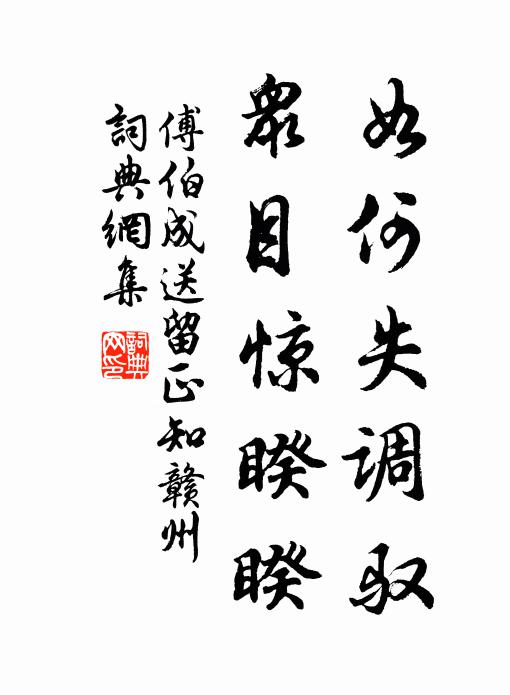 如何失调驭
眾目惊睽睽
傅伯成送留正知赣州
詞典網集
詞典网印